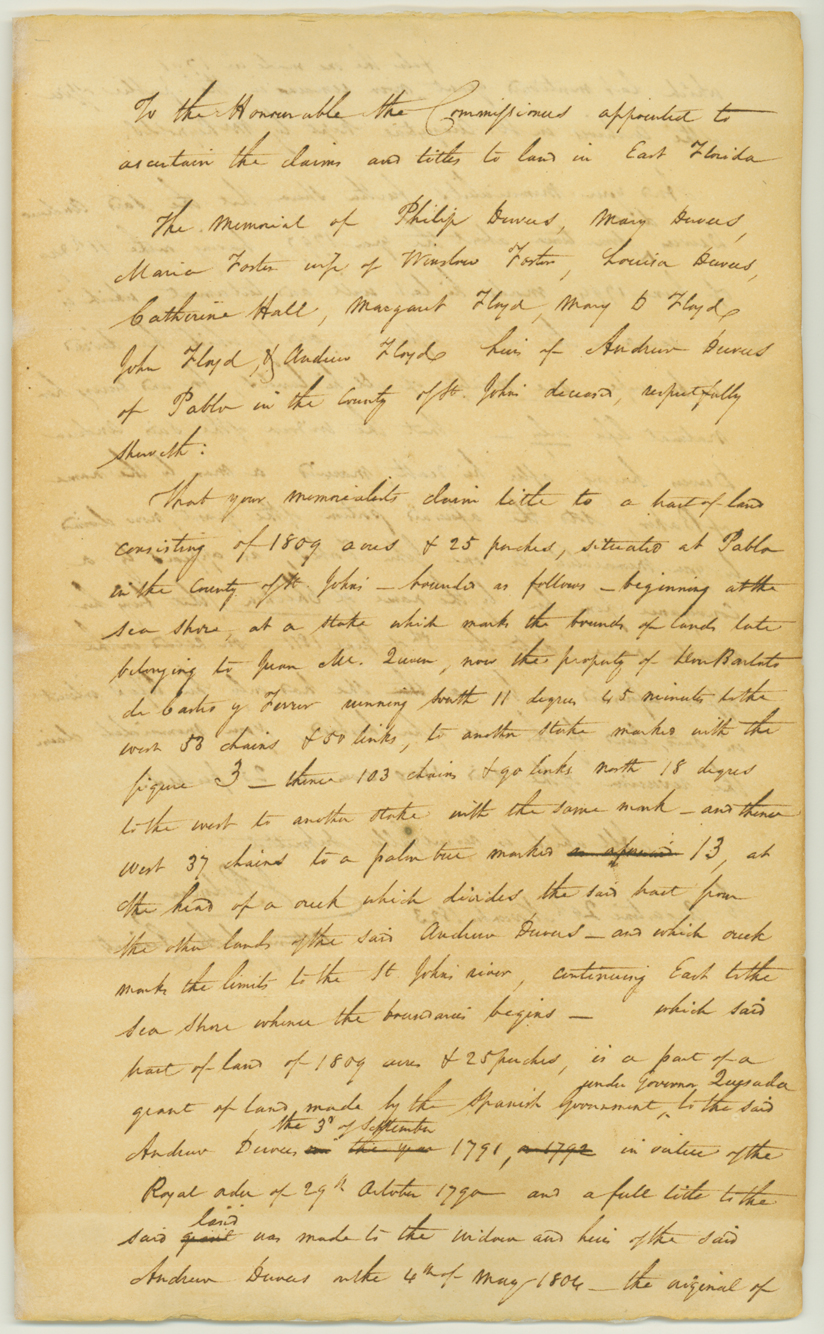 To the Honourable the Commissioners appointed to
ascertain the claims and titles to land in East Florida
The Memorial of Philip Dewees, Mary Dewees,
Maria Foster wife of Winslow Foster, Louisa Dewees,
Catherine Hall, Margaret Floyd, Mary D Floyd
John Floyd, & Andrew Floyd heirs of Andrew Dewees
of Pablo in the County of St. Johns deceased, respectfully
sheweth:
That your memorialists claim title to a tract of land
consisting of 1809 acres & 25 perches, situated at Pablo
in the County of St. Johns – bounded as follows – beginning at the
sea shore, at a stake which marks the bounds of lands late
belonging to Juan Mc. Queen, now the property of Don Bartolo
de Castro y Ferrer running South 11 degrees 45 minutes to the
west 53 chains & 50 links, to another stake marked with the
figure 3 – thence 103 chains & 90 links north 18 degrees
to the west to another stake with the same mark – and thence
west 37 chains to a palm tree marked 13, at
the head of a creek which divides the said tract from
the other lands of the said Andrew Dewees – and which creek
marks the limits to the St Johns river, continuing East to the
sea shore whence the boundaries begins – which said
tract of land of 1809 acres & 25 perches, is a part of a
under Governor Quesada
grant of land made by the Spanish Government, to the said
the 3d of September
Andrew Dewees in the year 1791, or 1792 in virtue of the
Royal order of 29th October 1790 and a full title to the
land
said grant was made to the widow and heirs of the said
Andrew Dewees on the 4th of May 1804 – the original of